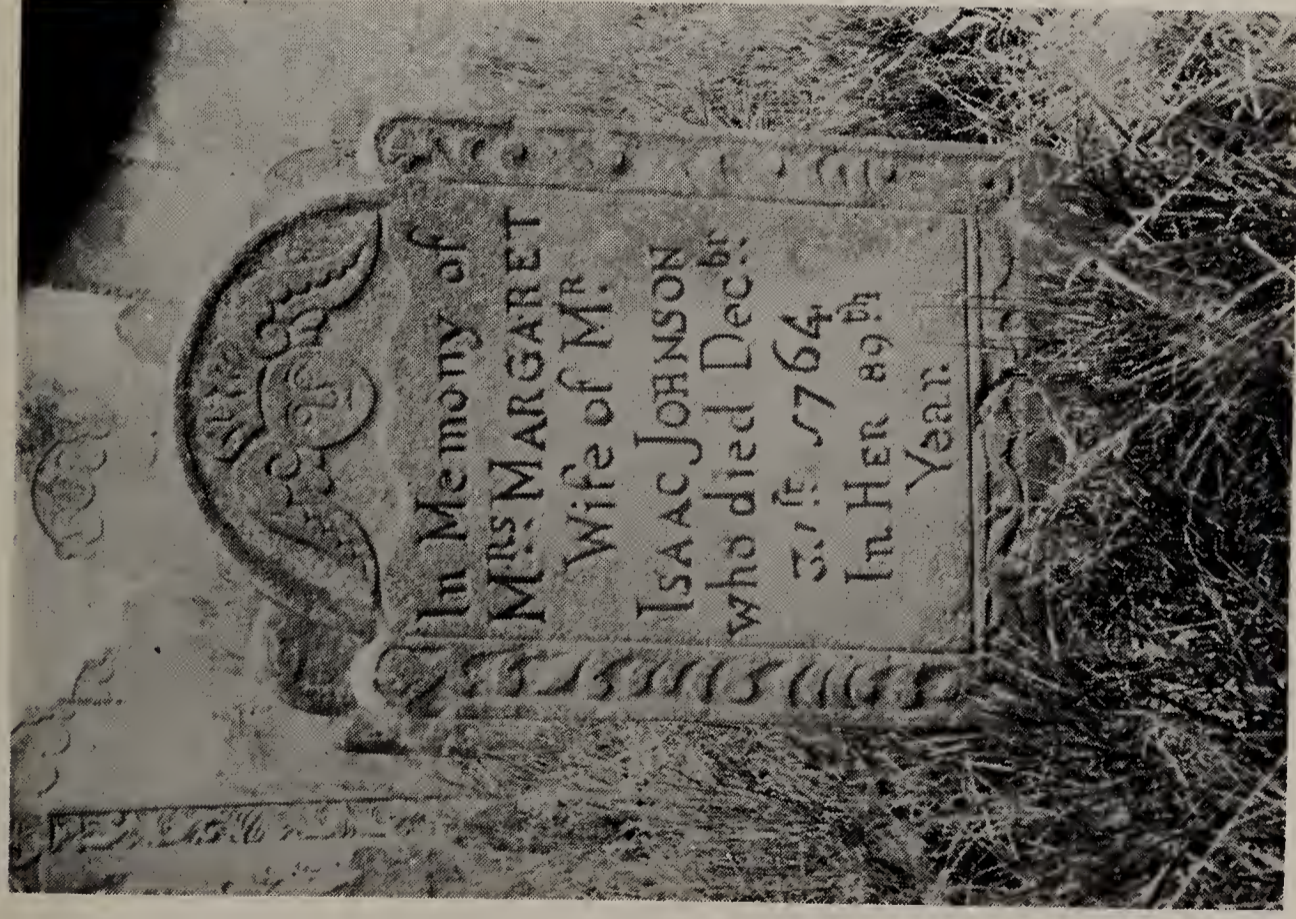 In Memory of
Mrs. MARGARET
Wife of Mr.
ISAAC JOHNSON
who died Decbr.
31st. 1764
In HER 89th
Year.